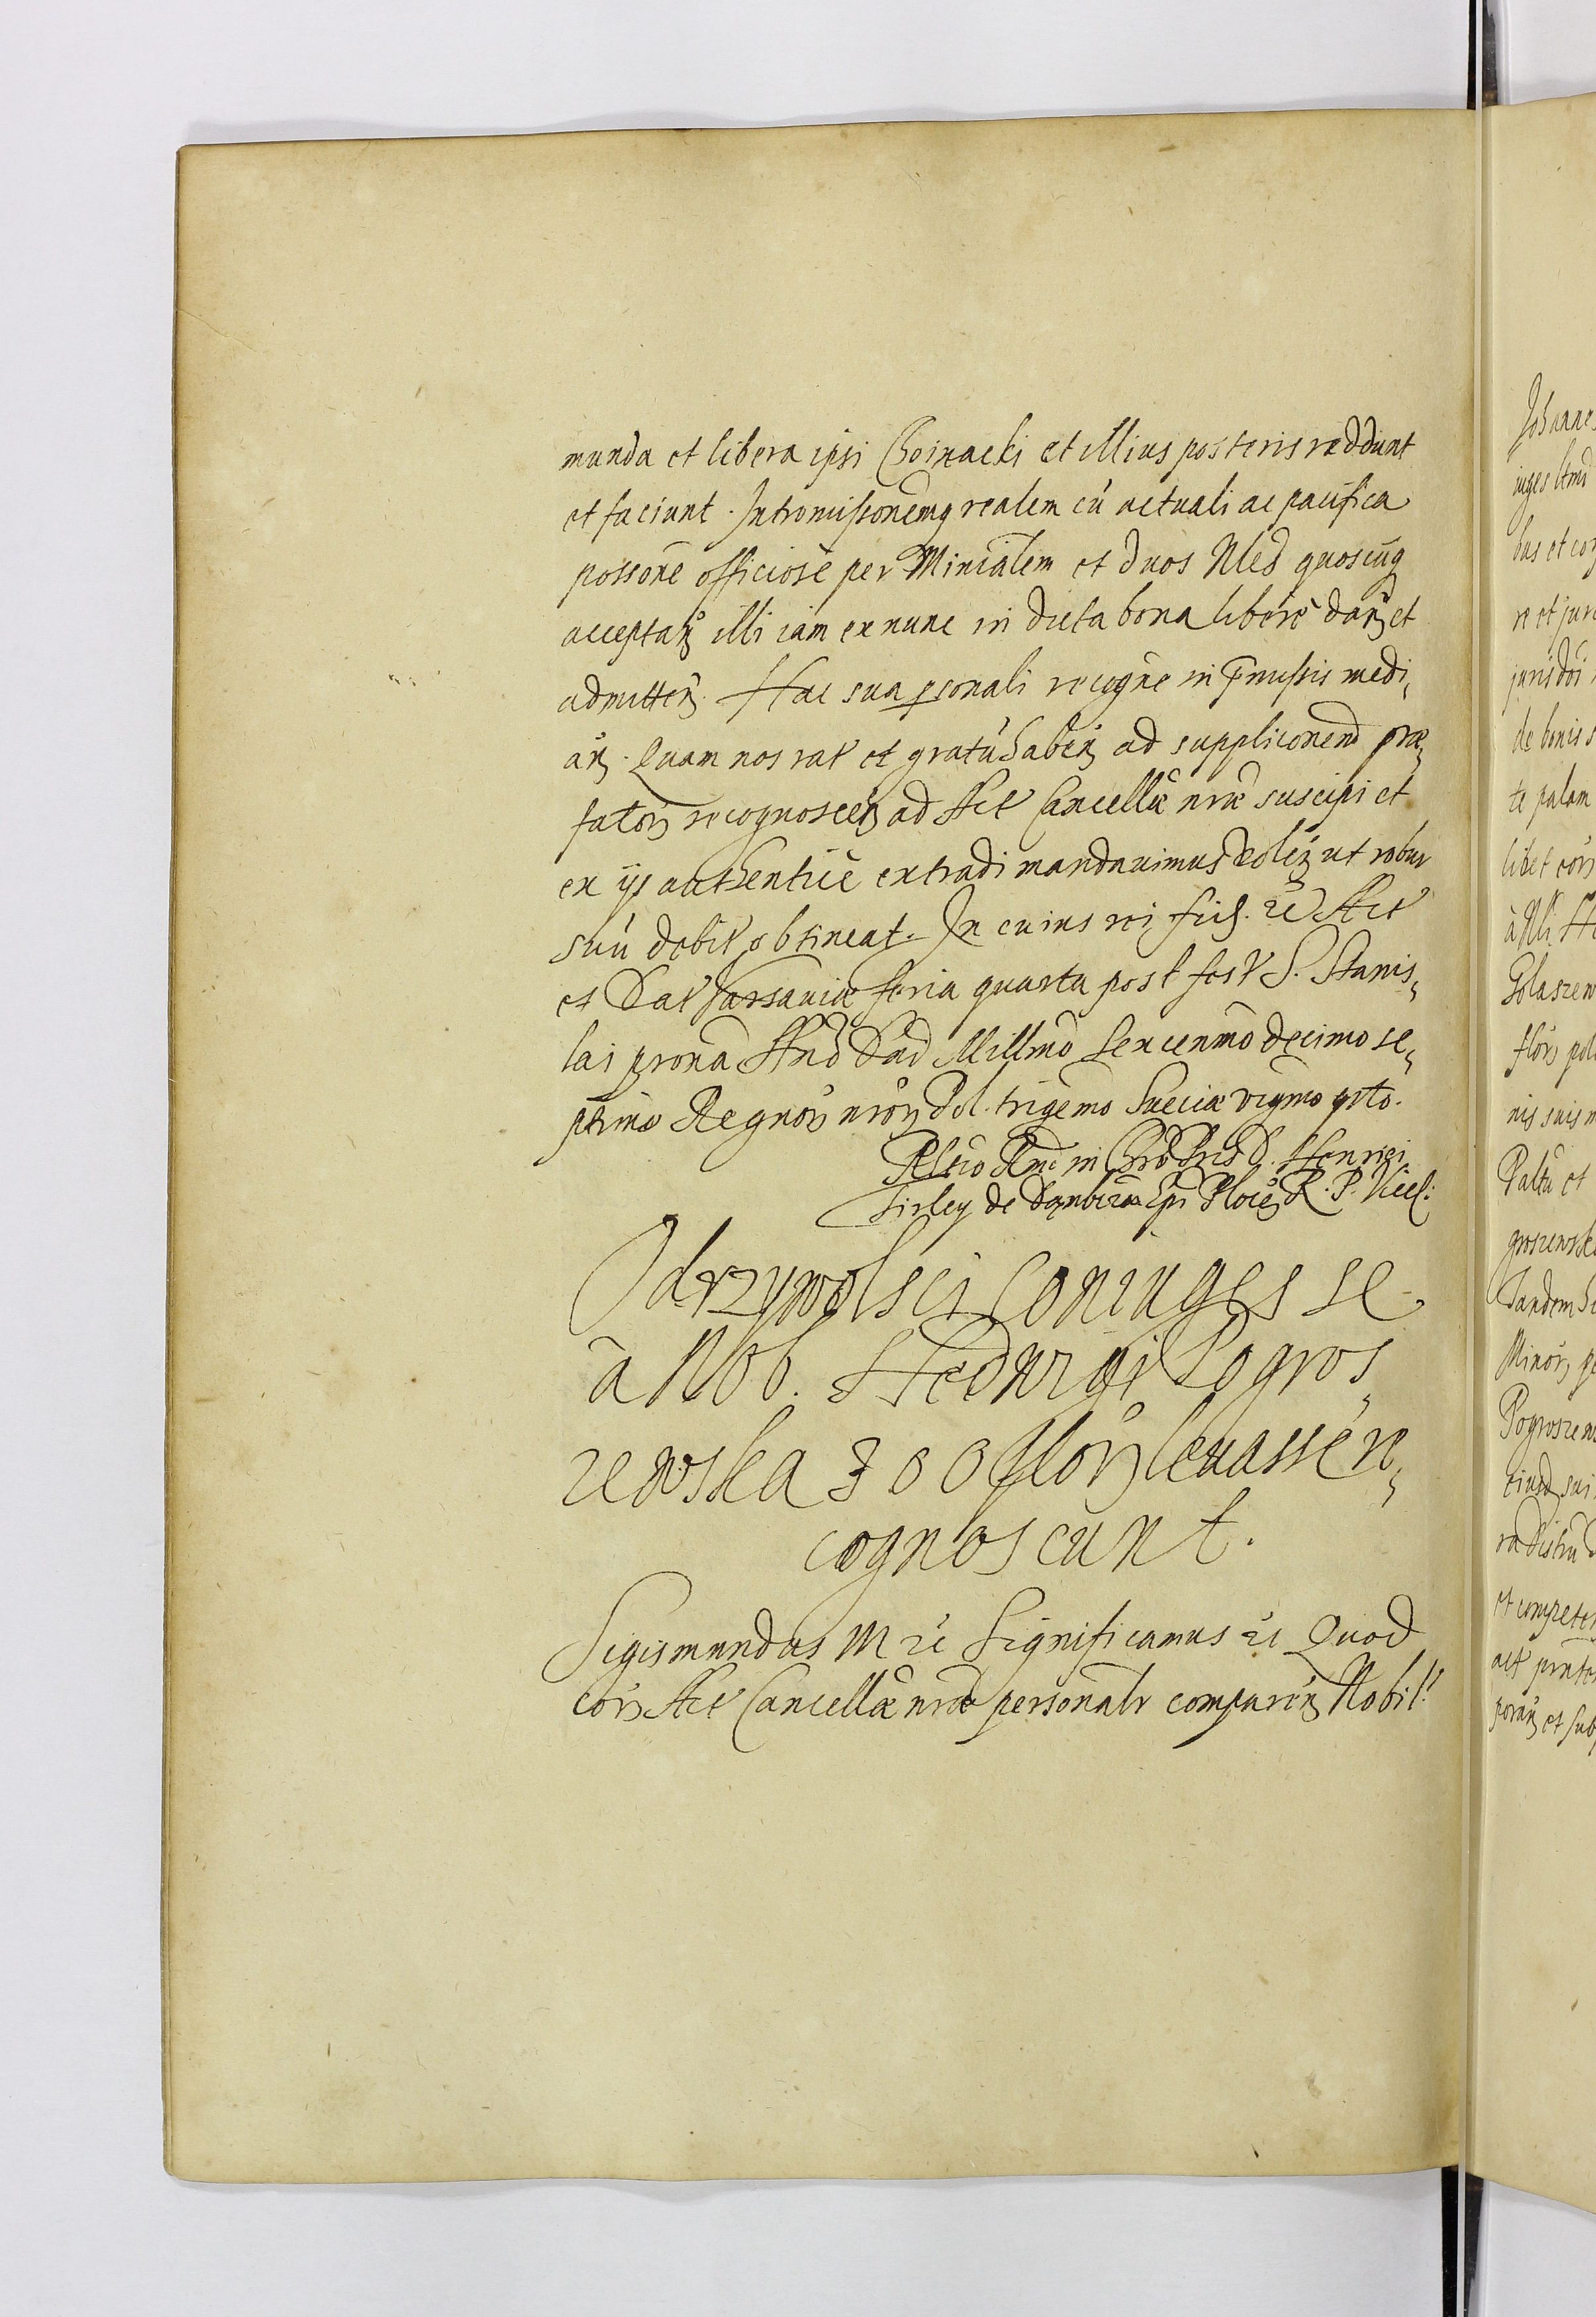 munda et libera ipsi Choinacki et illius posteris reddunt
et faciunt. Intromissionemq realem cū actuali ac pacifica
possone officiose per Minialem et duos Nles quoscūq
acceptan illi iam ex nunc in dicta bona libere dan et
admitten. Hac sua psonali recogne in pmissis medi,
an. Quam nos rat et gratū haben ad suppliconem præ,
fator recognoscen ad Act Cancellæ nræ suscipi et
ex ijs authentice extradi mandauimus ut robur
suū debit obtineat. In cuius rei fid. rc Act
et Dat Varsauiæ feria quarta post fest S. Stanis,
lai proxa Ano Dni Millmo Sexcenmo decimo se,
ptimo Regnor nror Pol. trigemo Sueciæ vigmo qrto.
Relatio Rndi in Chro Pris D. Henrici
Firley de Dąbrowica Epi Plocen R. P. Vicel:
Odrzywolsci Coniuges se
à Nob. Hedwigi Pogros,
zewska 300 flor leuasse re,
cognoscunt.
Sigismundus M rc Significamus rc Quod
cor Act Cancellæ nræ personalr comparen Nobil:
Johannes
iuges
bus et
re et jure
jurisdoi
de bonis s
te palam
libet
à Nli
Golaszew
flor pol
nis suis m
Paltu et
groszewska
Tandem
Minor
Pogroszew
eiusd sui
ra
et competen
act
poran et sub